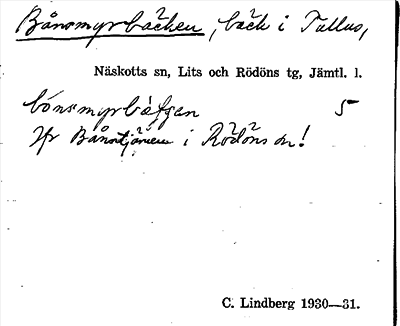 Bånsmyrbäcken, bäck i Tullus,
Näskotts sn, Lits och Rödöns tg, Jämtl. l.
bónsmyrbäʃʃen 5
Jfr Bånntjärnen i Rödöns sn!
C. Lindberg 1930—31.